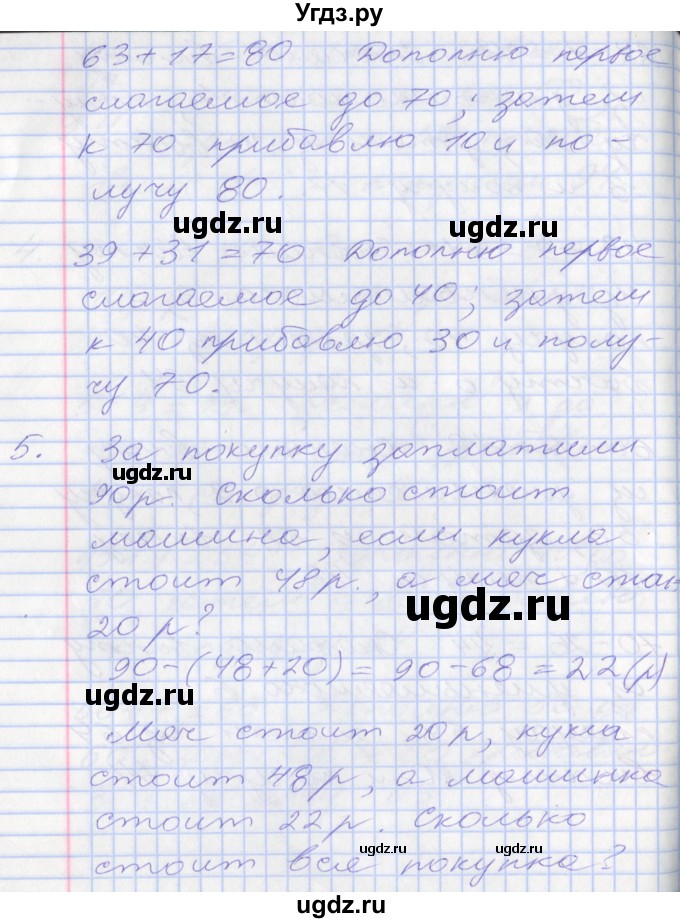 Угдз.ру
63+17=80 Дополню первое
слагаемое до 70, затем
к 70 прибавлю 10 и по-
лучу 80.
ugdz.ru ugdz.ru
39+31=70 Дополню первое
слагаемое до 40, затем
к 40 прибавлю 30 и полу-
чу 70.
5. За покупку заплатили
ugdz.ru
90р. Сколько стоит
машина, если кукла
стоит 48р., а мяч стои
ugdz.ru
20 р?
90-(48+20)=90-68=22(р)
ugdz.ru
Мяч стоит 20р, кукла
стоит 48р, а машинка
стоит 22р. Сколько
ugdz.ru ugdz.ru
стоит вся покупка?
ugdz.ru